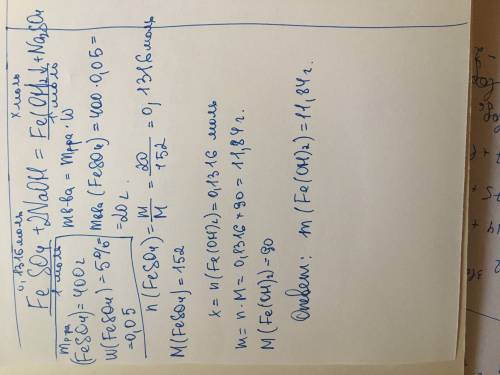 0,1316 моль        x моль
FeSO4 + 2NaOH = Fe(OH)2↓ + Na2SO4
1 моль        1 моль
mр-ра (FeSO4) = 400г
W(FeSO4) = 5% = 0,05
mв-ва = mр-ра · W
mв-ва (FeSO4) = 400 · 0,05 = 20 г.
n(FeSO4) = m/M = 20/152 = 0,1316 моль
M(FeSO4) = 152
x = n(Fe(OH)2) = 0,1316 моль
m = n · M = 0,1316 * 90 = 11,84 г.
M(Fe(OH)2) = 90
Ответ: m(Fe(OH)2) = 11,84 г.